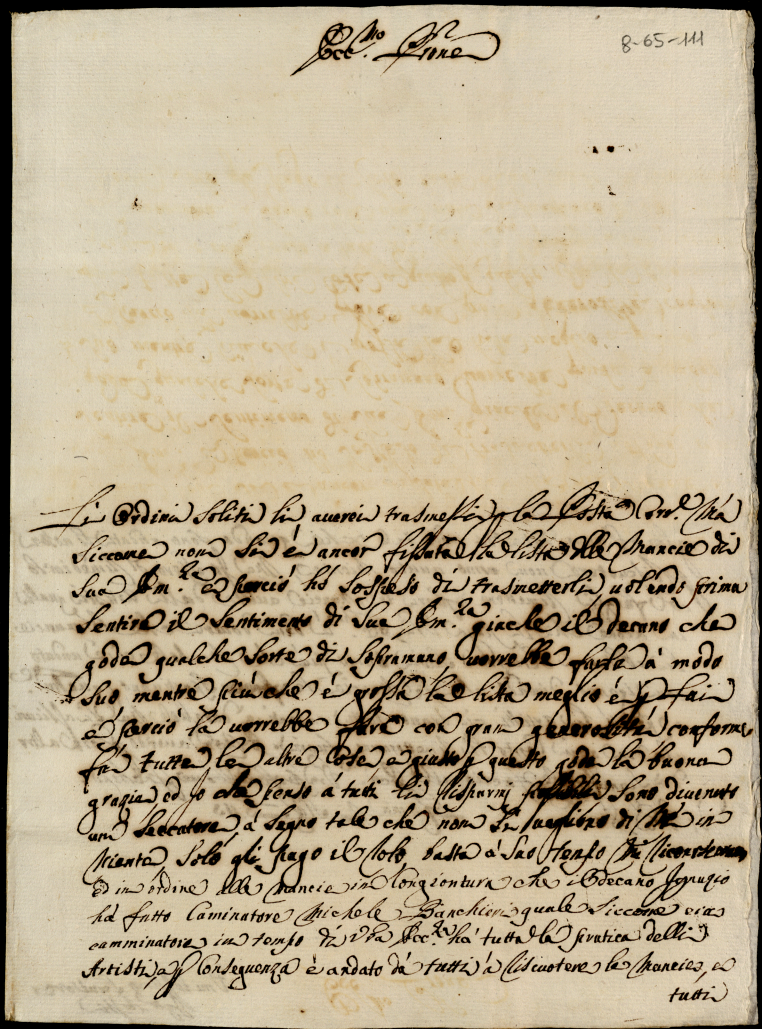 Ecc.mo Prone
8-65-111
Li Ordini soliti li averei trasmessi p la Posta Corr.e Mà
siccome non si è ancor fissata la lista delle Mancie di
Sua Em.za e perciò hó sospeso di trasmetterli, volendo prima
sentire il sentimento di Sua Em.za giache il Decano che
gode qualche sorte di soframano, vorrebbe farla à modo
suo, mentre più che é grossa la lista meglio è p
e perciò la vorrebbe fare con gran generosità, conforme
fà tutte le altre cose, e giusto p questo gode la buona
grazia, ed Jo che penso à tutti li risparmj possibili sono divenuto
un Seccatore, à segno tale che non si vogliono di Mè in
niente, solo gli pago il basta à suo tempo
Ed in ordine alle Mancie in Congiontura che il Decano
hà fatto Caminatore Michele Banchieri quale siccome era
camminatore in tempo di V.ra Ecc.za hà tutta la pratica delli
Artisti, e p Conseguenza è andato dà tutti à riscuotere le Mancie, e
tutti